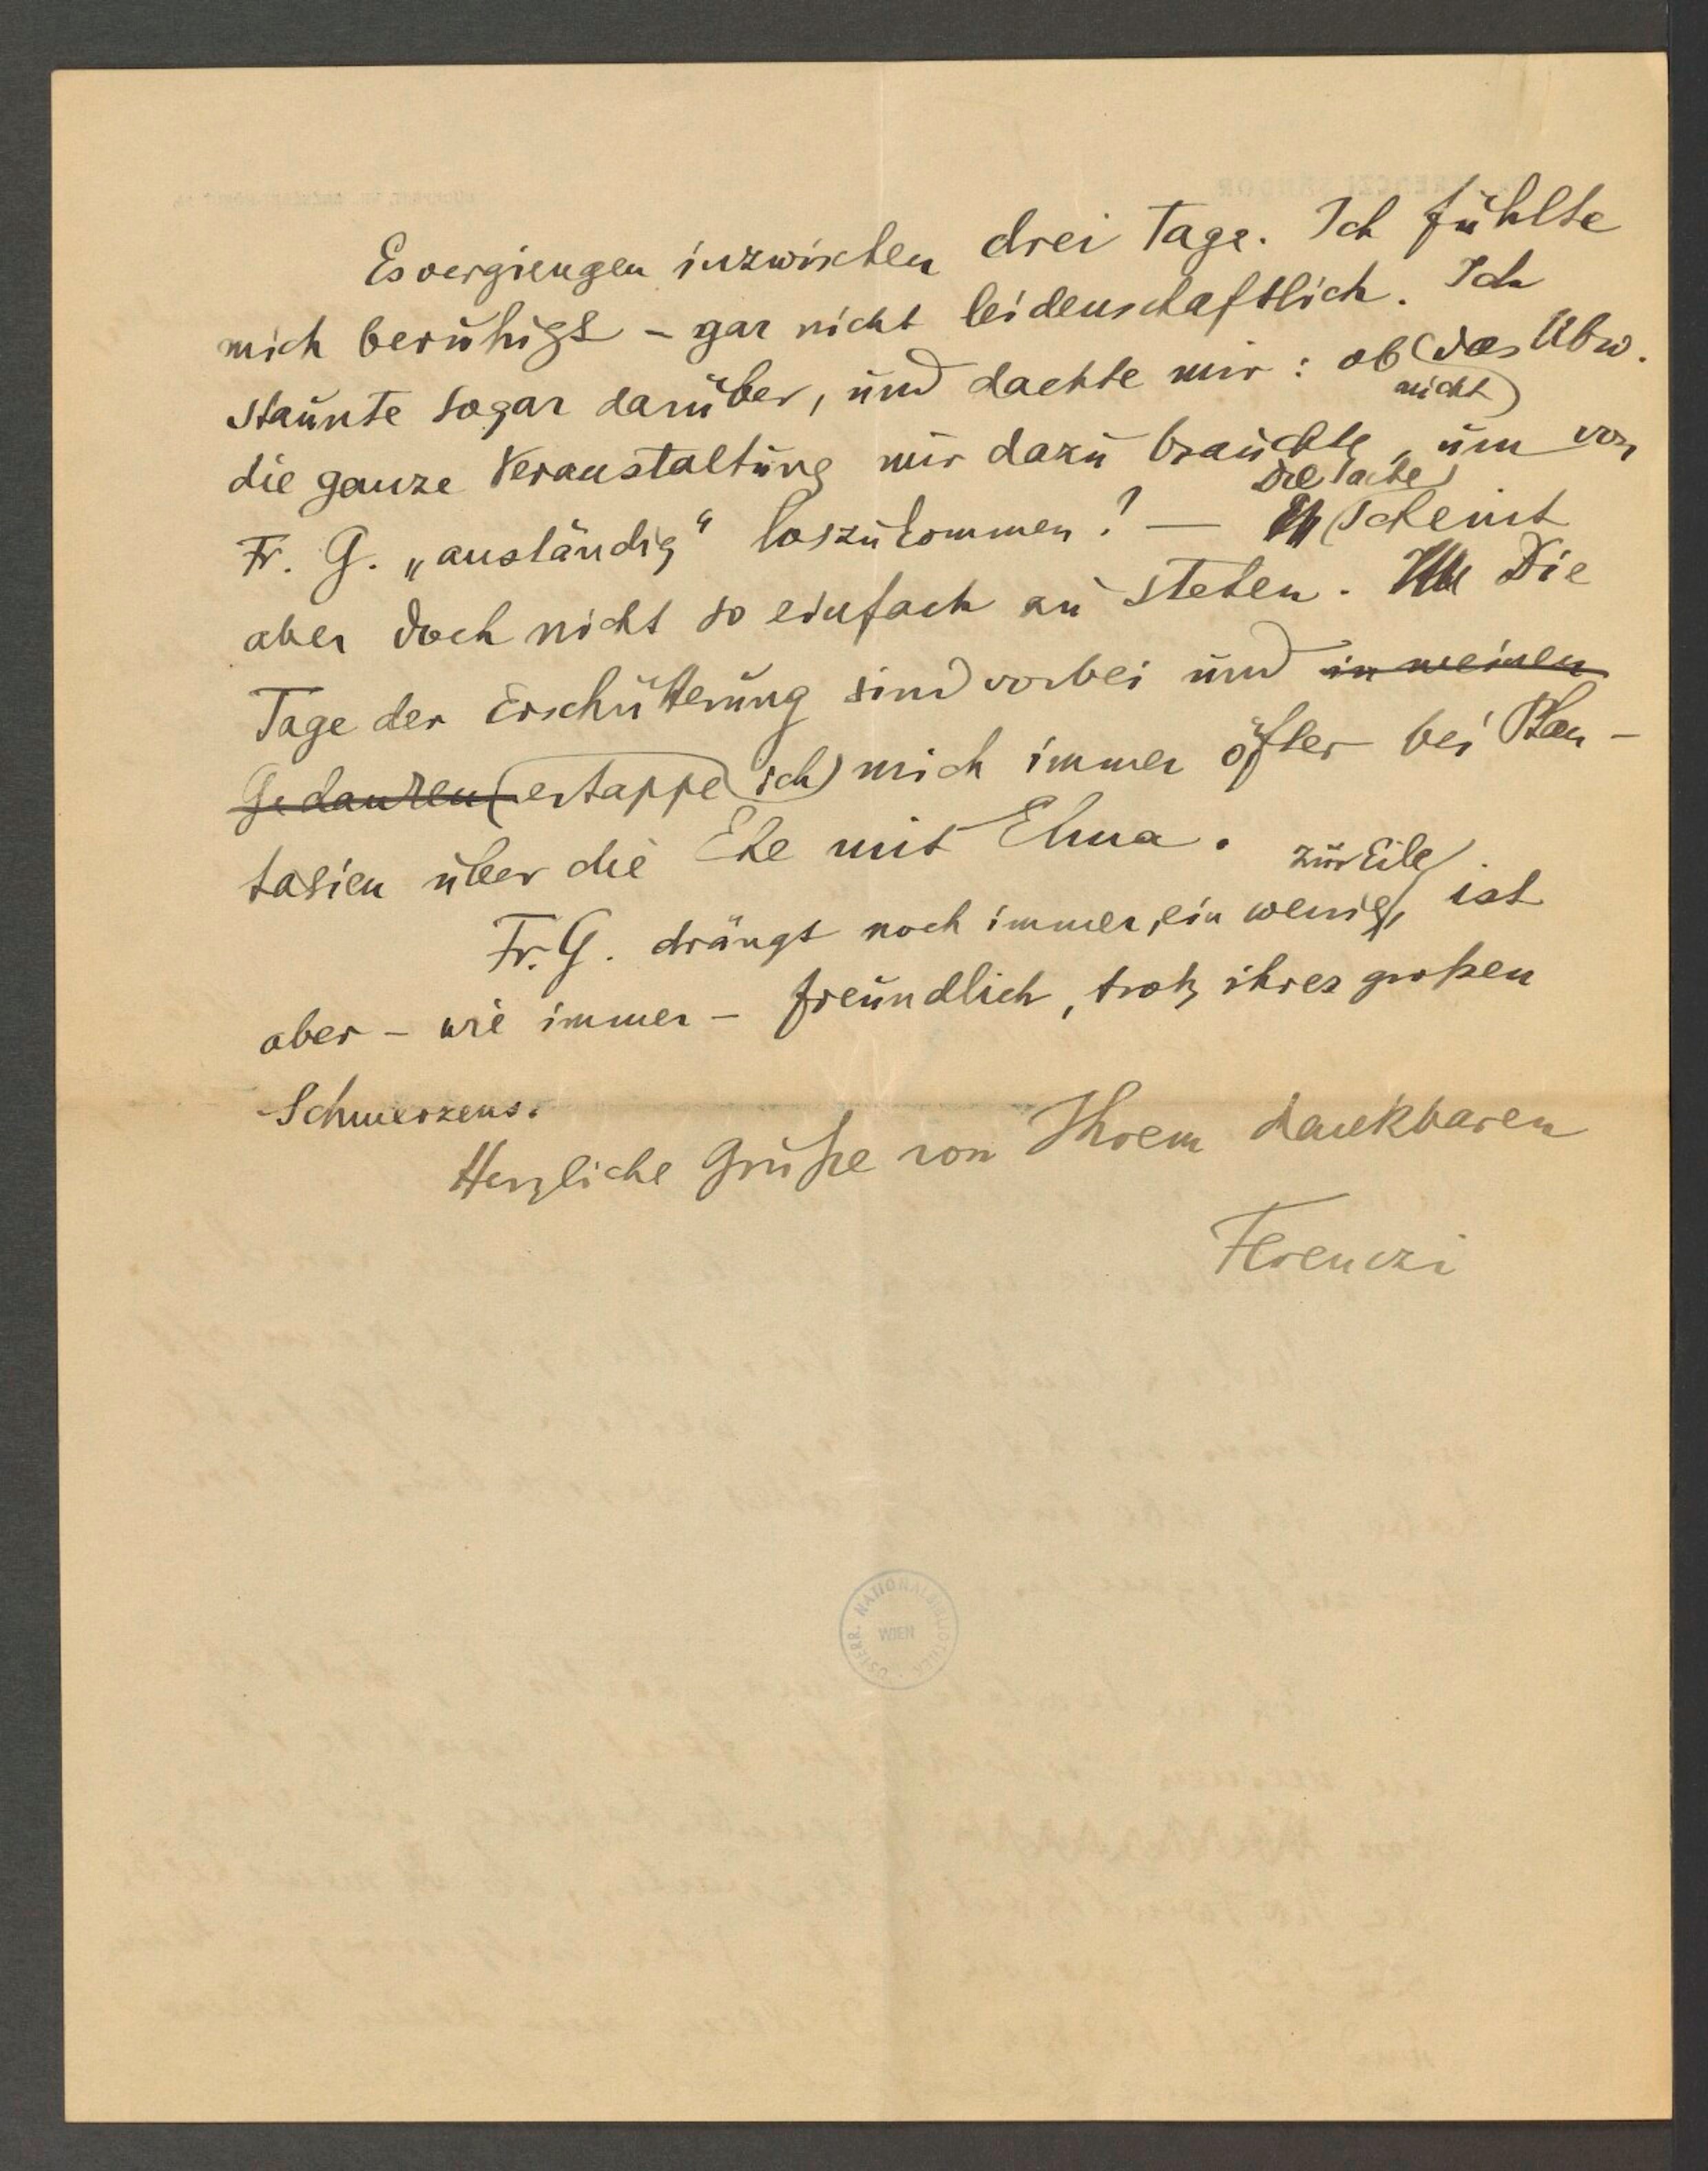 Es vergiengen inzwischen drei Tage. Ich fühlte
mich beruhigt – gar nicht leidenschaftlich. Ich
staunte sogar darüber, und dachte mir: ob das Ubw.
nicht
die ganze Veranstaltung nur dazu brauchte, um von
die Sache
Fr. G. „anständig“ loszukommen? — scheint
aber doch nicht so einfach zu stehen. Die
Tage der Erschütterung sind vorbei und in meinen
Gedanken ertappe ich mich immer öfter bei Phan-
tasien über die Ehe mit Elma.
zur Eile
Fr. G. drängt noch immer, ein wenig, ist
aber – wie immer – freundlich, trotz ihres großen
Schmerzens.
Herzliche Grüße von Ihrem dankbaren
Ferenczi
ÖSTERR. NATIONALBIBLIOTHEK
WIEN